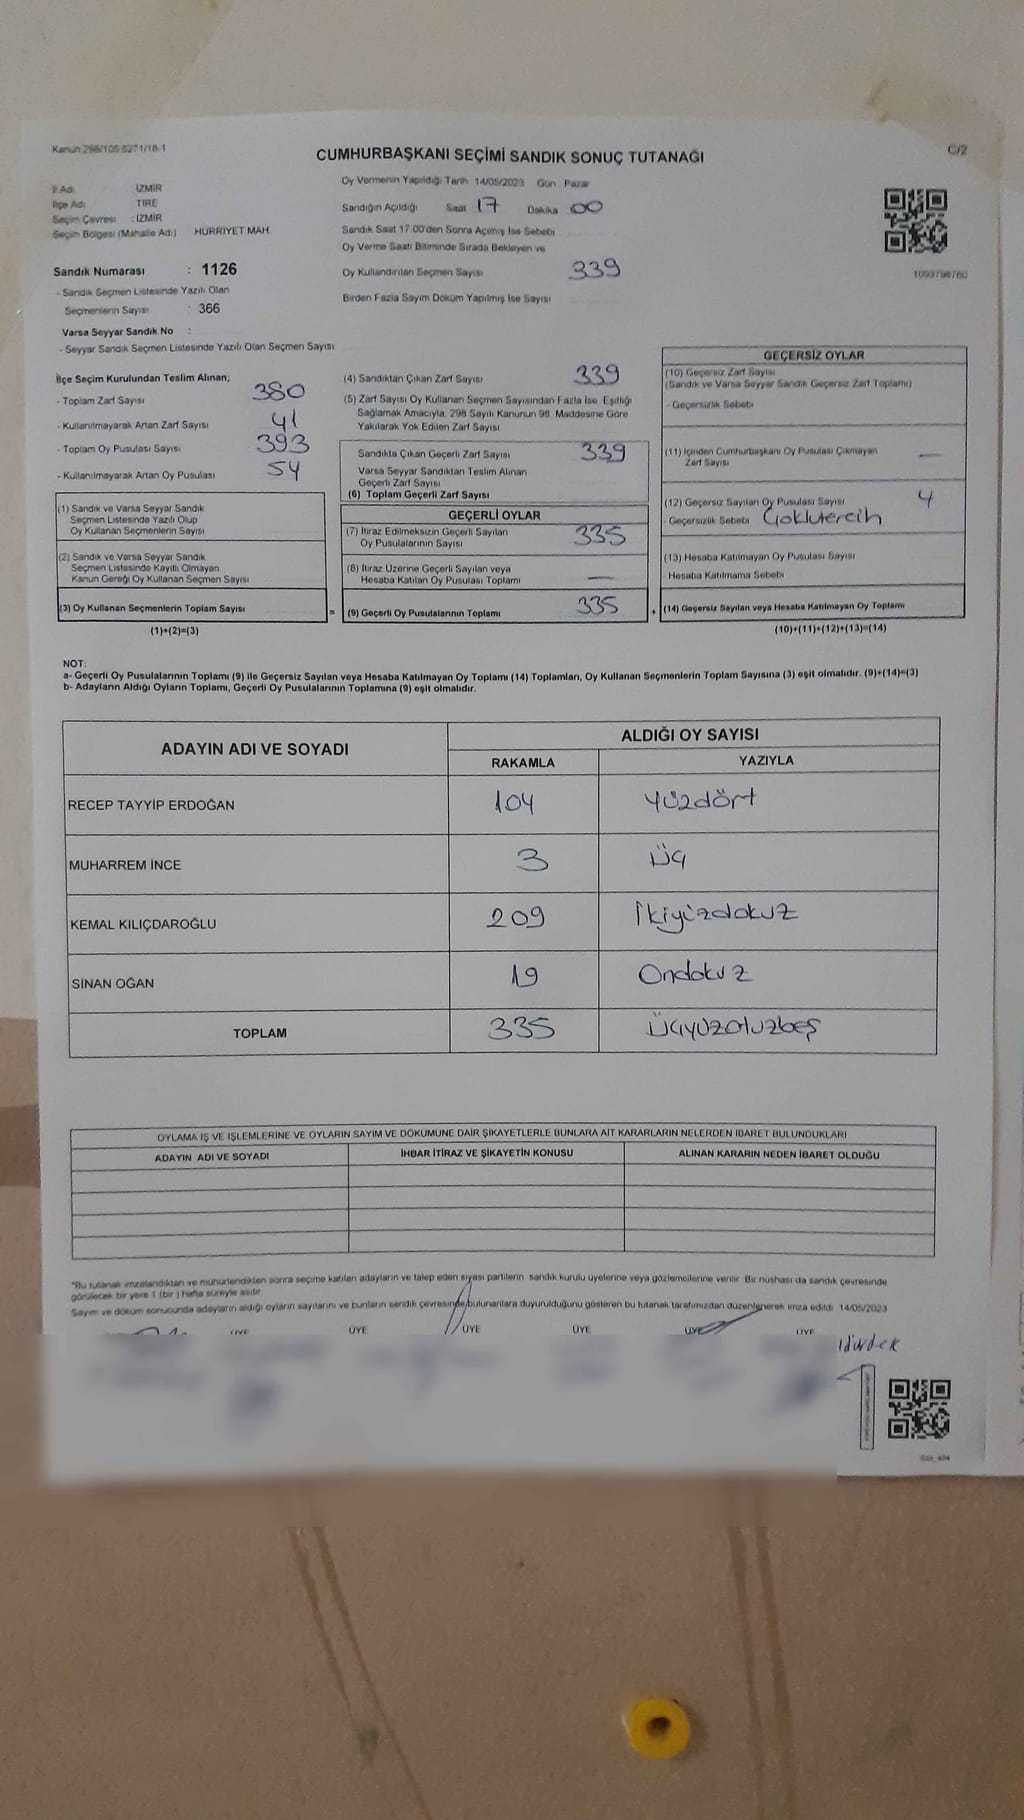 Kanun:298/105.6271/18-1
CUMHURBAŞKANI SEÇİMİ SANDIK SONUÇ TUTANAĞI
C/2
İl Adı : İZMİR
İlçe Adı TİRE
Seçim Çevresi : İZMİR
Seçim Bölgesi (Mahalle Adı) HÜRRİYET MAH.
Sandık Numarası : 1126
- Sandık Seçmen Listesinde Yazılı Olan
Seçmenlerin Sayısı : 366
Varsa Seyyar Sandık No :
- Seyyar Sandık Seçmen Listesinde Yazılı Olan Seçmen Sayısı
Oy Vermenin Yapıldığı Tarih 14/05/2023 Gün Pazar
Sandığın Açıldığı Saat 17 Dakika 00
Sandık Saat 17.00'den Sonra Açılmış İse Sebebi
Oy Verme Saati Bitiminde Sırada Bekleyen ve
Oy Kullandırılan Seçmen Sayısı 339
Birden Fazla Sayım Döküm Yapılmış İse Sayısı
İlçe Seçim Kurulundan Teslim Alınan;
- Toplam Zarf Sayısı 380
- Kullanılmayarak Artan Zarf Sayısı 41
- Toplam Oy Pusulası Sayısı 393
- Kullanılmayarak Artan Oy Pusulası 54
(1) Sandık ve Varsa Seyyar Sandık
Seçmen Listesinde Yazılı Olup
Oy Kullanan Seçmenlerin Sayısı
(2) Sandık ve Varsa Seyyar Sandık
Seçmen Listesinde Kayıtlı Olmayan
Kanun Gereği Oy Kullanan Seçmen Sayısı
(3) Oy Kullanan Seçmenlerin Toplam Sayısı =
(1)+(2)=(3)
(4) Sandıktan Çıkan Zarf Sayısı 339
(5) Zarf Sayısı Oy Kullanan Seçmen Sayısından Fazla İse, Eşitliği
Sağlamak Amacıyla, 298 Sayılı Kanunun 98. Maddesine Göre
Yakılarak Yok Edilen Zarf Sayısı
Sandıkta Çıkan Geçerli Zarf Sayısı 339
Varsa Seyyar Sandıktan Teslim Alınan
Geçerli Zarf Sayısı
(6) Toplam Geçerli Zarf Sayısı
GEÇERLİ OYLAR
(7) İtiraz Edilmeksizin Geçerli Sayılan
Oy Pusulalarının Sayısı 335
(8) İtiraz Üzerine Geçerli Sayılan veya
Hesaba Katılan Oy Pusulası Toplamı —
(9) Geçerli Oy Pusulalarının Toplamı 335 +
GEÇERSİZ OYLAR
(10) Geçersiz Zarf Sayısı
(Sandık ve Varsa Seyyar Sandık Geçersiz Zarf Toplamı)
- Geçersizlik Sebebi
(11) İçinden Cumhurbaşkanı Oy Pusulası Çıkmayan
Zarf Sayısı —
(12) Geçersiz Sayılan Oy Pusulası Sayısı 4
- Geçersizlik Sebebi Çoklutercih
(13) Hesaba Katılmayan Oy Pusulası Sayısı
Hesaba Katılmama Sebebi
(14) Geçersiz Sayılan veya Hesaba Katılmayan Oy Toplamı
(10)+(11)+(12)+(13)=(14)
NOT:
a- Geçerli Oy Pusulalarının Toplamı (9) ile Geçersiz Sayılan veya Hesaba Katılmayan Oy Toplamı (14) Toplamları, Oy Kullanan Seçmenlerin Toplam Sayısına (3) eşit olmalıdır. (9)+(14)=(3)
b- Adayların Aldığı Oyların Toplamı, Geçerli Oy Pusulalarının Toplamına (9) eşit olmalıdır.
ADAYIN ADI VE SOYADI ALDIĞI OY SAYISI
RAKAMLA YAZIYLA
RECEP TAYYİP ERDOĞAN 104 Yüzdört
MUHARREM İNCE 3 Üç
KEMAL KILIÇDAROĞLU 209 İkiyüzdokuz
SİNAN OĞAN 19 Ondokuz
TOPLAM 335 Üçyüzotuzbeş
OYLAMA İŞ VE İŞLEMLERİNE VE OYLARIN SAYIM VE DÖKÜMÜNE DAİR ŞİKAYETLERLE BUNLARA AİT KARARLARIN NELERDEN İBARET BULUNDUKLARI
ADAYIN ADI VE SOYADI İHBAR İTİRAZ VE ŞİKAYETİN KONUSU ALINAN KARARIN NEDEN İBARET OLDUĞU
"Bu tutanak imzalandıktan ve mühürlendikten sonra seçime katılan adayların ve talep eden siyasi partilerin sandık kurulu üyelerine veya gözlemcilerine verilir. Bir nüshası da sandık çevresinde
görülecek bir yere 1 (bir) hafta süreyle asılır.
Sayım ve döküm sonucunda adayların aldığı oyların sayılarını ve bunların sandık çevresinde bulunanlara duyurulduğunu gösteren bu tutanak tarafımızdan düzenlenerek imza edildi. 14/05/2023
ÜYE ÜYE ÜYE ÜYE ÜYE ÜYE